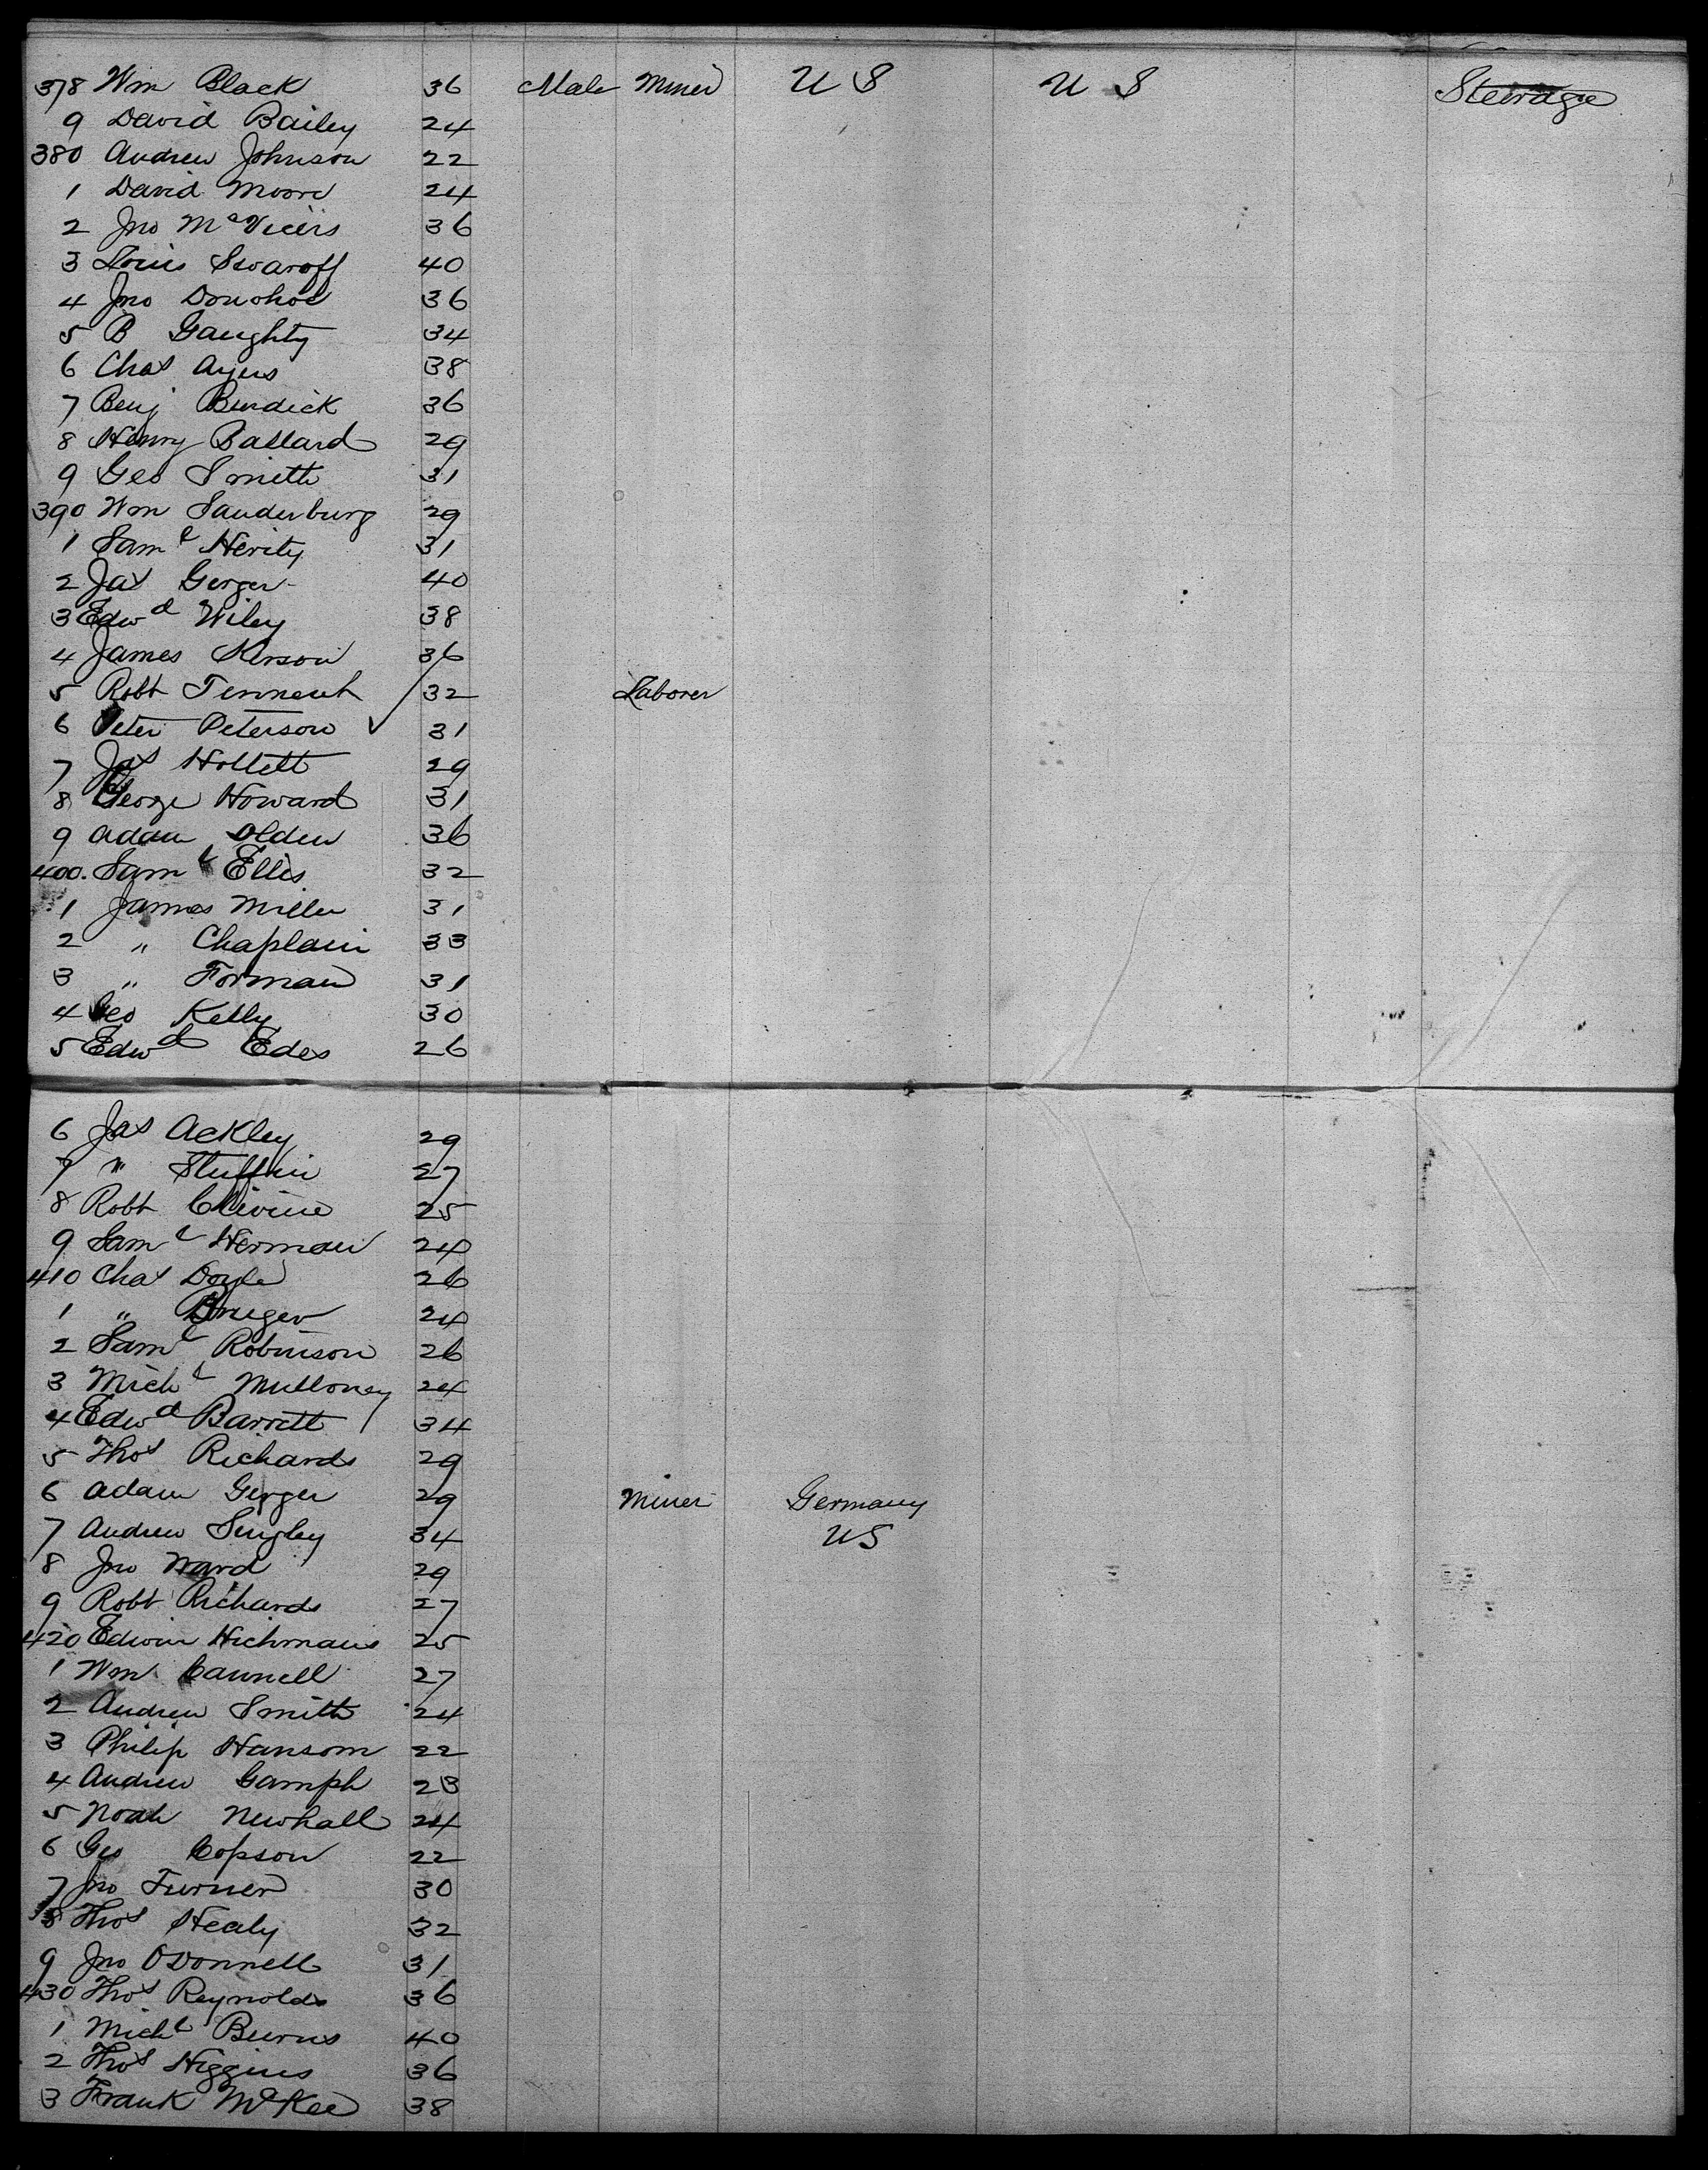 378 Wm Black 36 Male Miner U S U S Steerage
9 David Bailey 24
380 Andrew Johnson 22
1 David Moore 24
2 Jno McVicers 36
3 Louis Swaroff 40
4 Jno Donohoe 36
5 B Gaughty 34
6 Chas Ayers 38
7 Benj Burdick 36
8 Henry Ballard 29
9 Geo Smith 31
390 Wm Sanderburg 29
1 Saml Herity 31
2 Jas Gerger 40
3 Edwd Wiley 38
4 James 36
5 Robt Tennent 32 Laborer
6 Peter Peterson 31
7 Jas Hollett 29
8 George Howard 31
9 Adam Olden 36
400. Saml Ellis 32
1 James Miller 31
2 " Chaplain 33
3 " Forman 31
4 Geo Kelly 30
5 Edwd Edes 26
6 Jas Ackley 29
7 " 27
8 Robt 25
9 Saml Herman 24
410 Chas Doyle 26
1 " 24
2 Saml Robinson 26
3 Michl Mulloney 24
4 Edwd Barrett 34
5 Thos Richards 29
6 Adam Gerger 29 Miner Germany
7 Andrew Singley 34 US
8 Jno Ward 29
9 Robt Richards 27
420 Edwin Hichmans 25
1 Wm Cannell 27
2 Andrew Smith 24
3 Philip Hansom 22
4 Andrew Gamph 23
5 Noah Newhall 24
6 Geo Copson 22
7 Jno Turner 30
8 Thos Healy 32
9 Jno ODonnell 31
430 Thos Reynolds 36
1 Michl Burns 40
2 Thos Higgins 36
3 Frank McKee 38